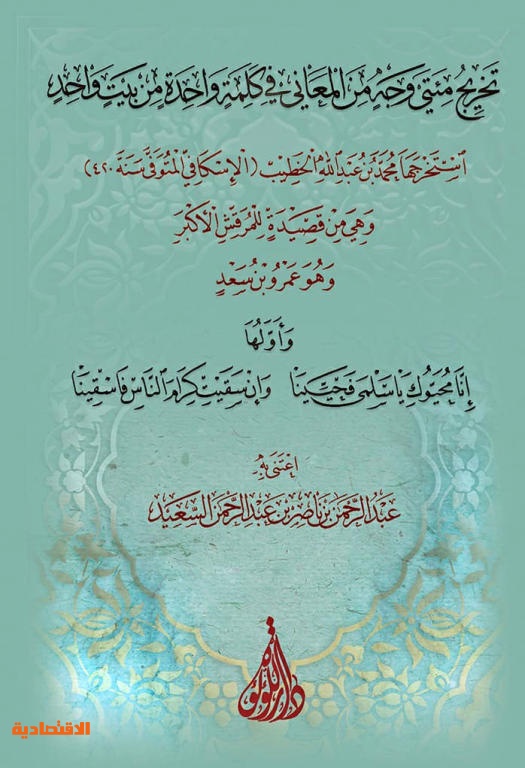 تَخْرِيجُ مِئَتَيْ وَجْهٍ مِنَ الْمَعَانِي فِي كَلِمَةٍ وَاحِدَةٍ مِنْ بَيْتٍ وَاحِدٍ
اسْتَخْرَجَهَا مُحَمَّدُ بْنُ عَبْدِ اللَّهِ الْخَطِيبُ (الْإِسْكَافِيُّ الْمُتَوَفَّى سَنَةَ ٤٢٠)
وَهِيَ مِنْ قَصِيدَةٍ لِلْمُرَقِّشِ الْأَكْبَرِ
وَهُوَ عَمْرُو بْنُ سَعْدٍ
وَأَوَّلُهَا
إِنَّا مُحَيُّوكِ يَا سَلْمَى فَحَيِّينَا وَإِنْ سَقَيْتِ كِرَامَ النَّاسِ فَاسْقِينَا
اعْتَنَى بِهِ
عَبْدُ الرَّحْمَنِ بْنُ نَاصِرِ بْنِ عَبْدِ الرَّحْمَنِ السَّعِيد
دار اللؤلؤة
الاقتصادية